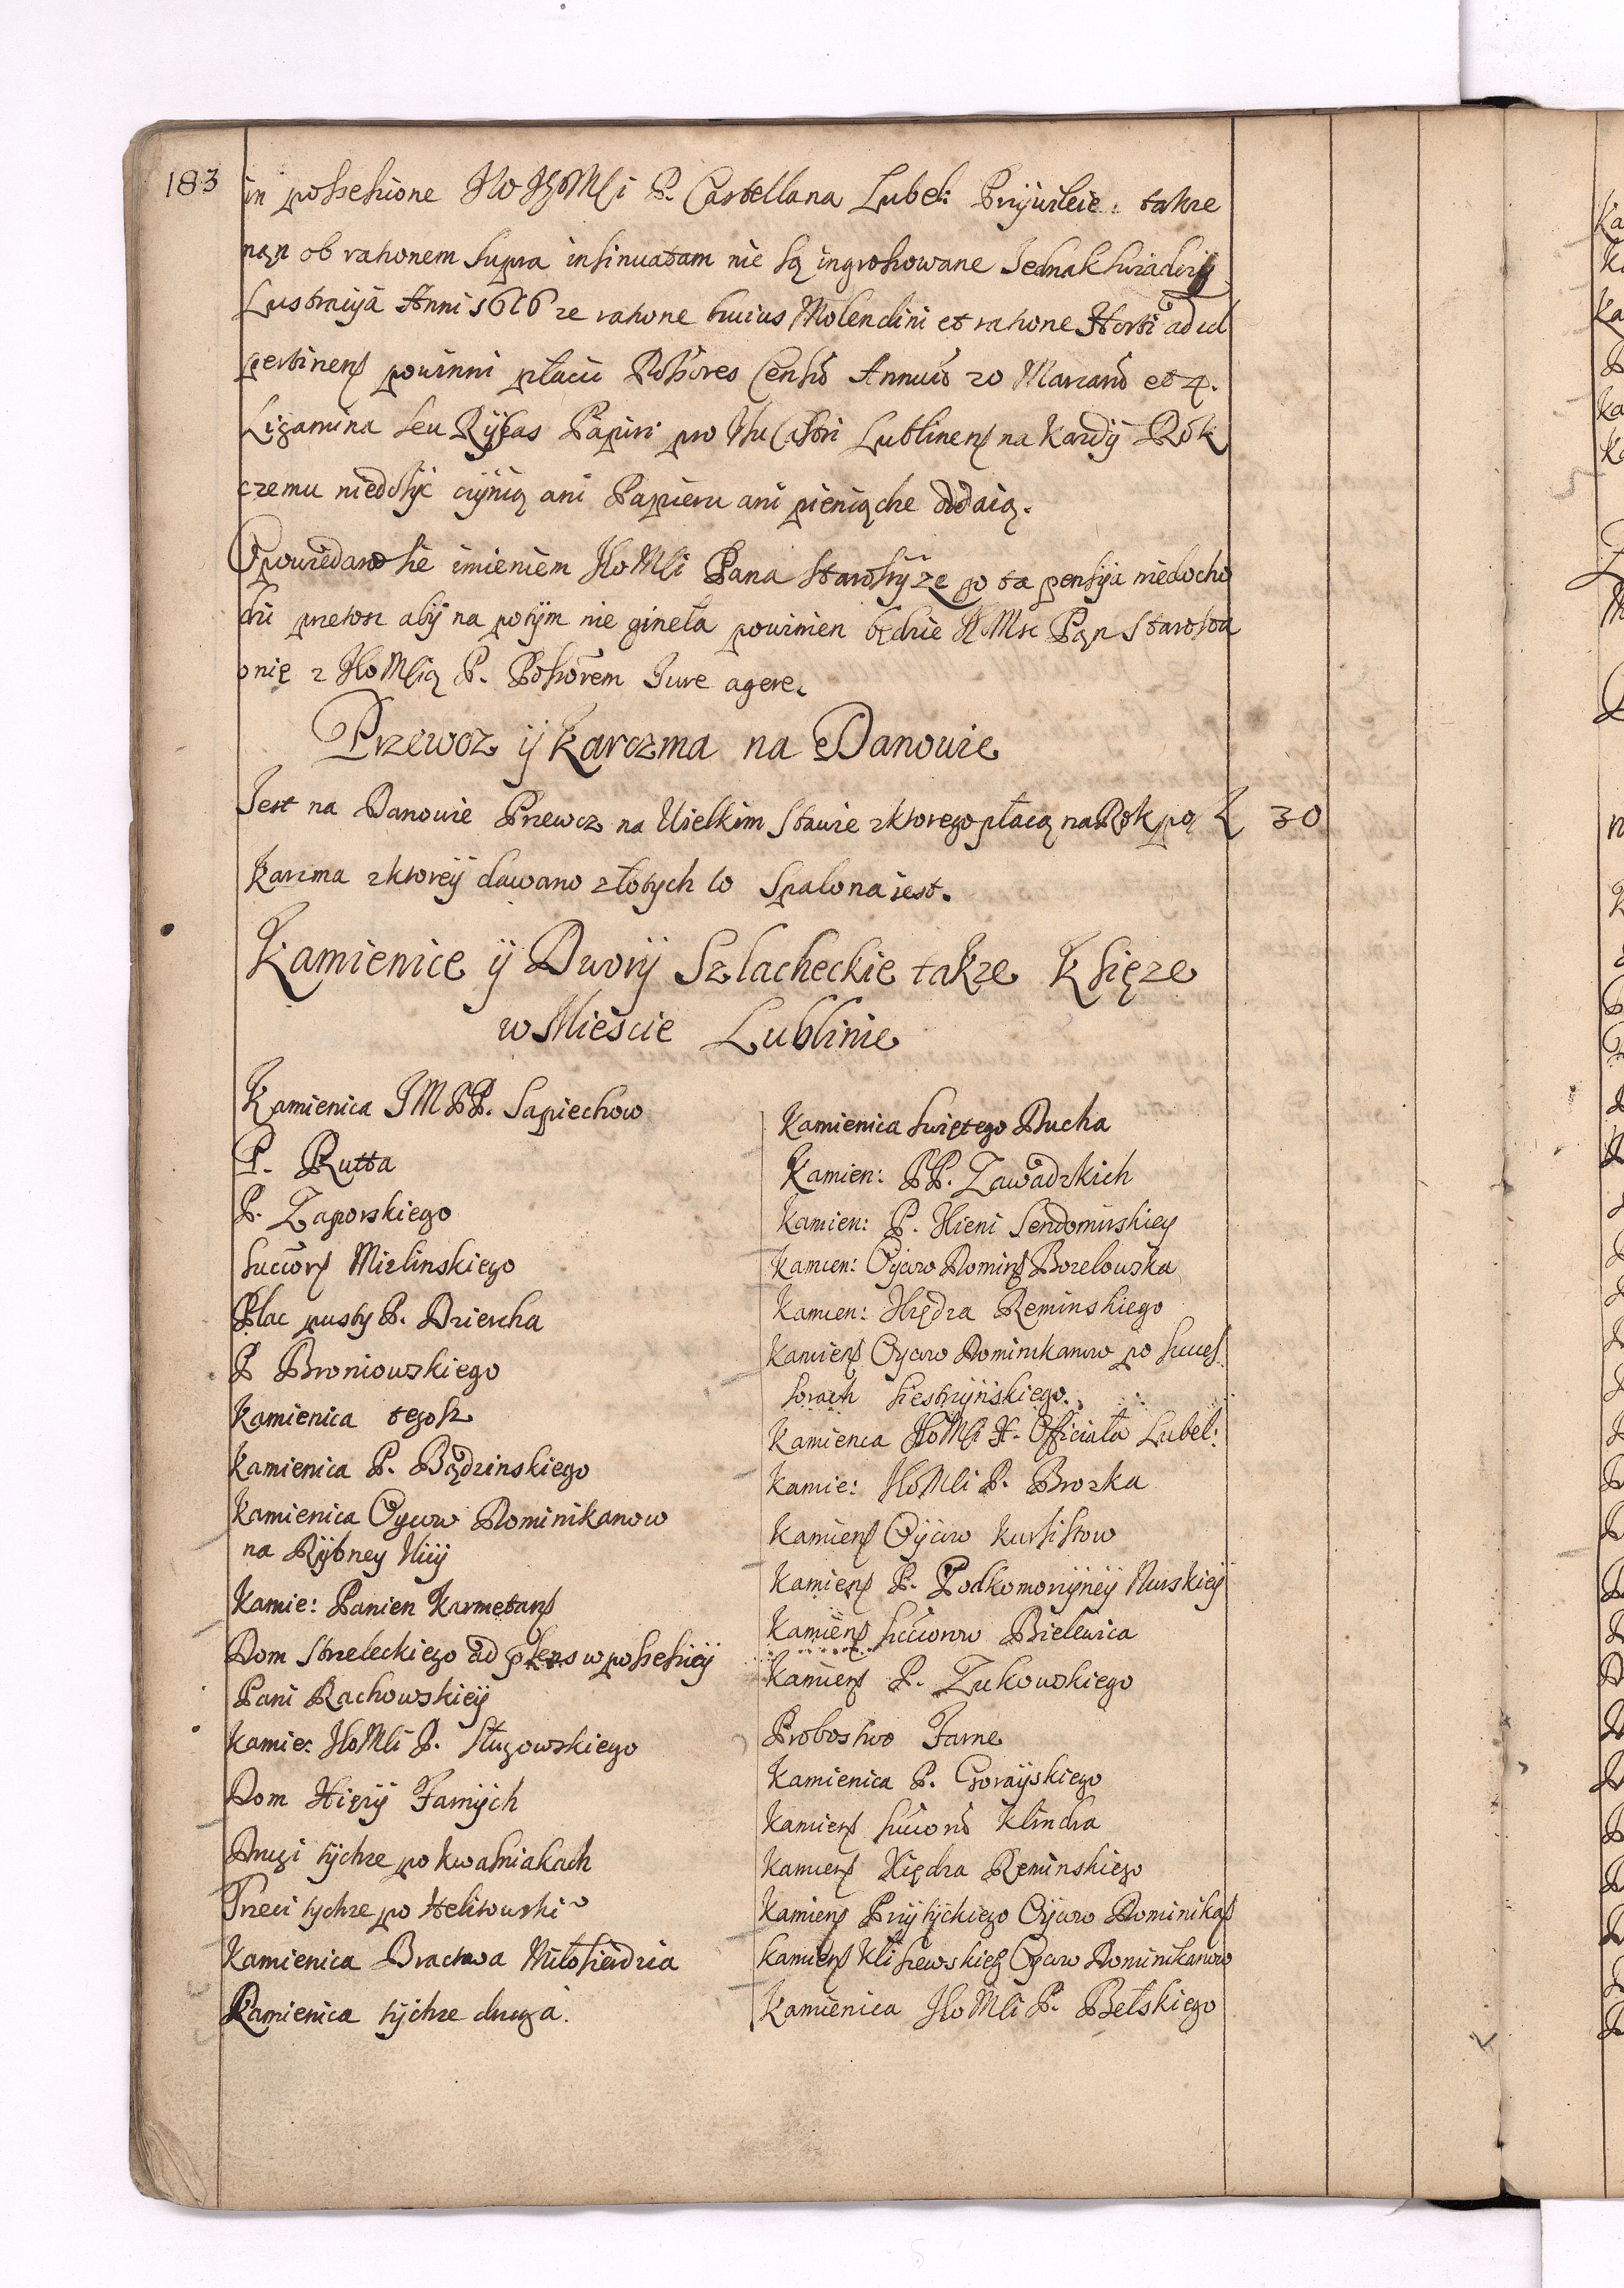 183
in possessione JKo JgoMści P. Castellana Lubel: Przywileie takze
nań ob rationem supra insinuatam nie są ingrossowane Jednak swiadczy
Lustracyia Anni 1616 ze ratione huius Molendini et ratione Horti ad id
pertinens powinni płacić Possores Censũ Annuũ 20 Marcarũ et 4.
Ligamina seu Ryzas Papiri pro Usu Castri Lublinens na kazdy Rok
czemu niedosyc czynią ani Papieru ani pieniądze oddaią.
Opowiedano sie imieniem JKoMści Pana Starosty ze go ta pensyia niedocho
dzi przetosz aby na potym nie gineła powinien będzie JKMsc Pan Starosta
o nię z JKoMścią P. Possorem Jure agere.
Przewoz ÿ Karczma na Danowie
Jest na Danowie Przewoz na Wielkim Stawie z ktorego płacą na Rok po Z 30
Karczma z ktoreÿ dawano złotych 10 Spalona iest.
Kamienice ÿ Dworÿ Szlacheckie takze Xsięze
w Miescie Lublinie
Kamienica JM PP. Sapiechow
P. Rutta
P. Zaporskiego
Succors Mizlinskiego
Plac pusty P. Dziercha
P Broniowskiego
Kamienica tegosz
Kamienica P. Bądzinskiego
Kamienica Oycow Dominikanow
na Rybney Ulij
Kamie: Panien Karmetans
Dom Strzeleckiego ad pñs w possessiey
Pani Rachowskieÿ
Kamie: JKoMści P. Sługowskiego
Dom Xięzÿ Farnÿch
Drugi tÿchze po Kwasniakach
Trzeci tychze po Helitowski
Kamienica Bractwa Miłosierdzia
Kamienica tÿchze druga.
Kamienica Swiętego Ducha
Kamien: PP. Zawadzkich
Kamien: P. Xieni Sendomirskieÿ
Kamien: Oÿcow Domins Bozelowska
Kamien: Xiędza Reminskiego
Kamiens Oÿcow Dominikanow po Succes
sorach Siestrzynskiego.
Kamienica JKoMści X. Officiała Lubel:
Kamie: JKoMści P. Brozka
Kamiens Oÿcow Kursistow
Kamiens P. Podkomorzyneÿ Nurskieÿ
Kamiens Succorow Bielewica
Kamiens P. Zukowskiego
Probostwo Farne
Kamienica P. Gorayskiego
Kamiens Succorũ Klindra
Kamiens Xiędza Reminskiego
Kamiens Przytyckiego Oycow Dominikas
Kamiens Kliszewskieg Oycow Dominikanow
Kamienica JKoMści P. Bełskiego